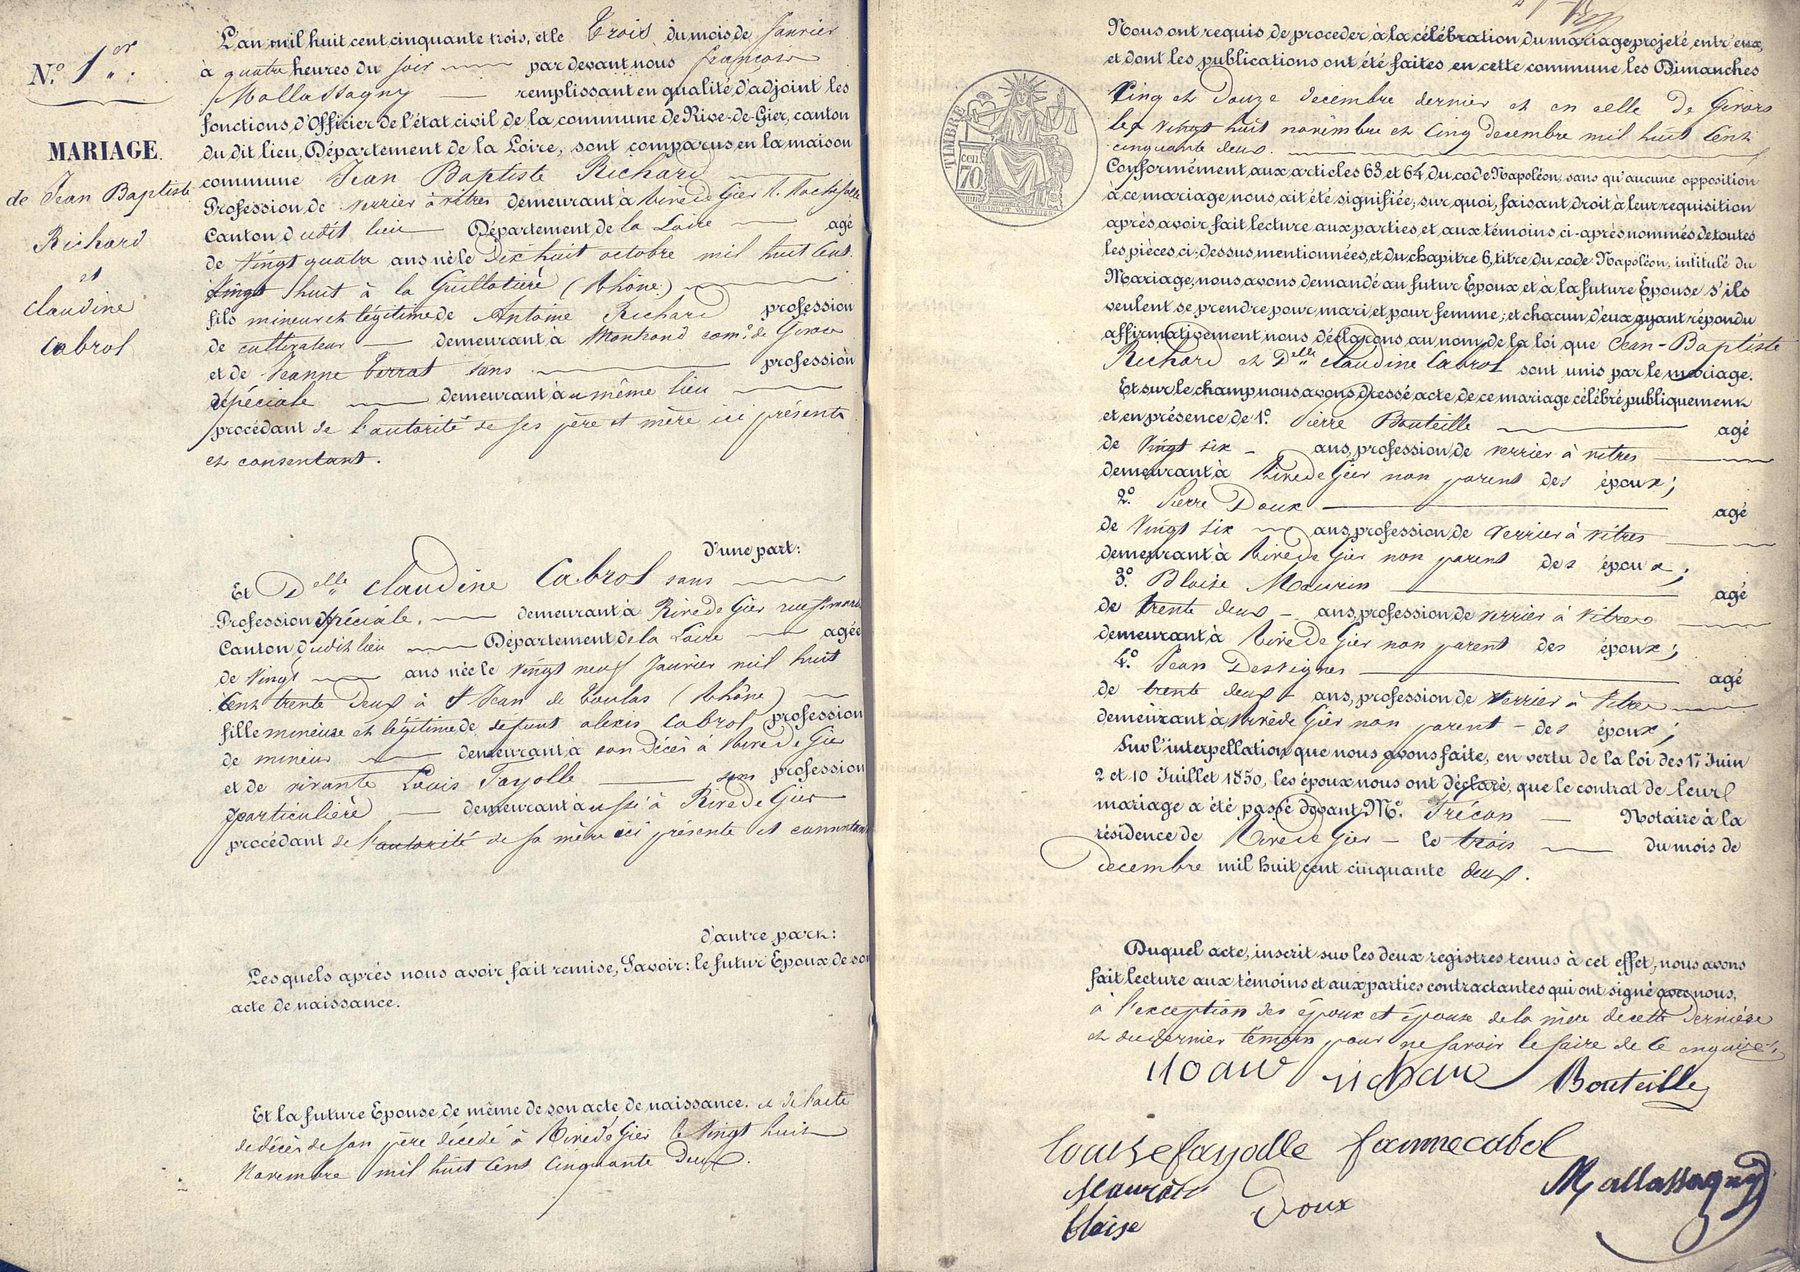 N.o 1.er
MARIAGE.
de Jean Baptiste
Richard
et
Claudine
Cabrol
L'an mil huit cent cinquante trois, et le Trois du mois de Janvier
à quatre heures du soir par devant nous françois
Mallassagny remplissant en qualité d'adjoint les
fonctions d'Officier de l'état civil de la commune de Rive-de-Gier, canton
du dit lieu, Département de la Loire, sont comparus en la maison
commune Jean Baptiste Richard
Profession de verrier à vitres demeurant à Rive de Gier
Canton dudit lieu Département de la Loire agé
de vingt quatre ans né le Dix huit octobre mil huit Cent
vingt huit à la Guillotière (Rhône)
fils mineur et légitime de Antoine Richard profession
de cultivateur demeurant à Montrond com.e de Givors
et de Jeanne Terrat sans profession
spéciale demeurant à u même lieu
procédant de l'autorité de ses père et mère ici présents
et consentant.
d'une part:
Et D.elle Claudine Cabrol sans
Profession spéciale, demeurant à Rive de Gier rue
Canton dudit lieu Département de la Loire agée
de vingt ans née le vingt neuf Janvier mil huit
Cent trente Deux à St Jean de Toulas (Rhône)
fille mineure et légitime de defunt alexis Cabrol profession
de mineur demeurant à son décès à Rive de Gier
et de vivante Louis Fayolle sans profession
particulière demeurant à ussi à Rive de Gier
procédant de l'autorité de sa mère ici présente et
d'autre part:
Lesquels après nous avoir fait remise, Savoir: le futur Epoux de son
acte de naissance.
Et la future Epouse, de même de son acte de naissance. et de l'acte
de décès de son père décédé à Rive de Gier le vingt huit
Novembre mil huit Cent Cinquante Deux.
TIMBRE
70 cen
Nous ont requis de proceder à la célébration du mariage projeté entr'eux,
et dont les publications ont été faites en cette commune, les Dimanches
Cinq et Douze decembre dernier et en celle De Givors
les vingt huit novembre et Cinq decembre mil huit Cent
cinquante deux.
Conformément aux articles 63 et 64 du code Napoléon, sans qu'aucune opposition
à ce mariage nous ait été signifiée; sur quoi, faisant droit à leur requisition
après avoir fait lecture aux parties, et aux témoins ci-après nommés, de toutes
les pièces, ci-dessus mentionnées, et du chapitre 6, titre du code Napoléon, intitulé du
Mariage, nous avons demandé au futur Epoux et à la future Epouse s'ils
veulent se prendre pour mari et pour femme; et chacun d'eux ayant répondu
affirmativement nous déclarons au nom de la loi que Jean-Baptiste
Richard et D.elle Claudine Cabrol sont unis par le mariage.
Et sur le champ nous avons dressé acte de ce mariage célébré publiquement
et en présence de 1.o Pierre Bouteille agé
de vingt six ans, profession de verrier à vitres
demeurant à Rive de Gier non parent des époux;
2.o Pierre Doux agé
de vingt six ans, profession de verrier à vitres
demeurant à Rive de Gier non parent des époux;
3.o Blaise Maurin agé
de trente deux ans, profession de verrier à vitres
demeurant à Rive de Gier non parent des époux;
4.o Jean Desvignes agé
de trente deux ans, profession de verrier à vitres
demeurant à Rive de Gier non parent des époux;
Sur l'interpellation que nous avons faite, en vertu de la loi des 17 Juin
2 et 10 Juillet 1850, les époux nous ont déclaré, que le contrat de leur
mariage a été passé devant M.e Frécon Notaire à la
résidence de Rive de Gier le trois du mois de
Decembre mil huit cent cinquante deux.
Duquel acte, inscrit sur les deux registres tenus à cet effet, nous avons
fait lecture aux témoins et aux parties contractantes qui ont signé avec nous,
à l'exception des époux et épouse de la mère de cette dernière
et du dernier témoin pour ne savoir le faire de ce enquis
Bouteille
Louise fayolle Jeanne cabol
Maurin Doux Mallassagny
blaise